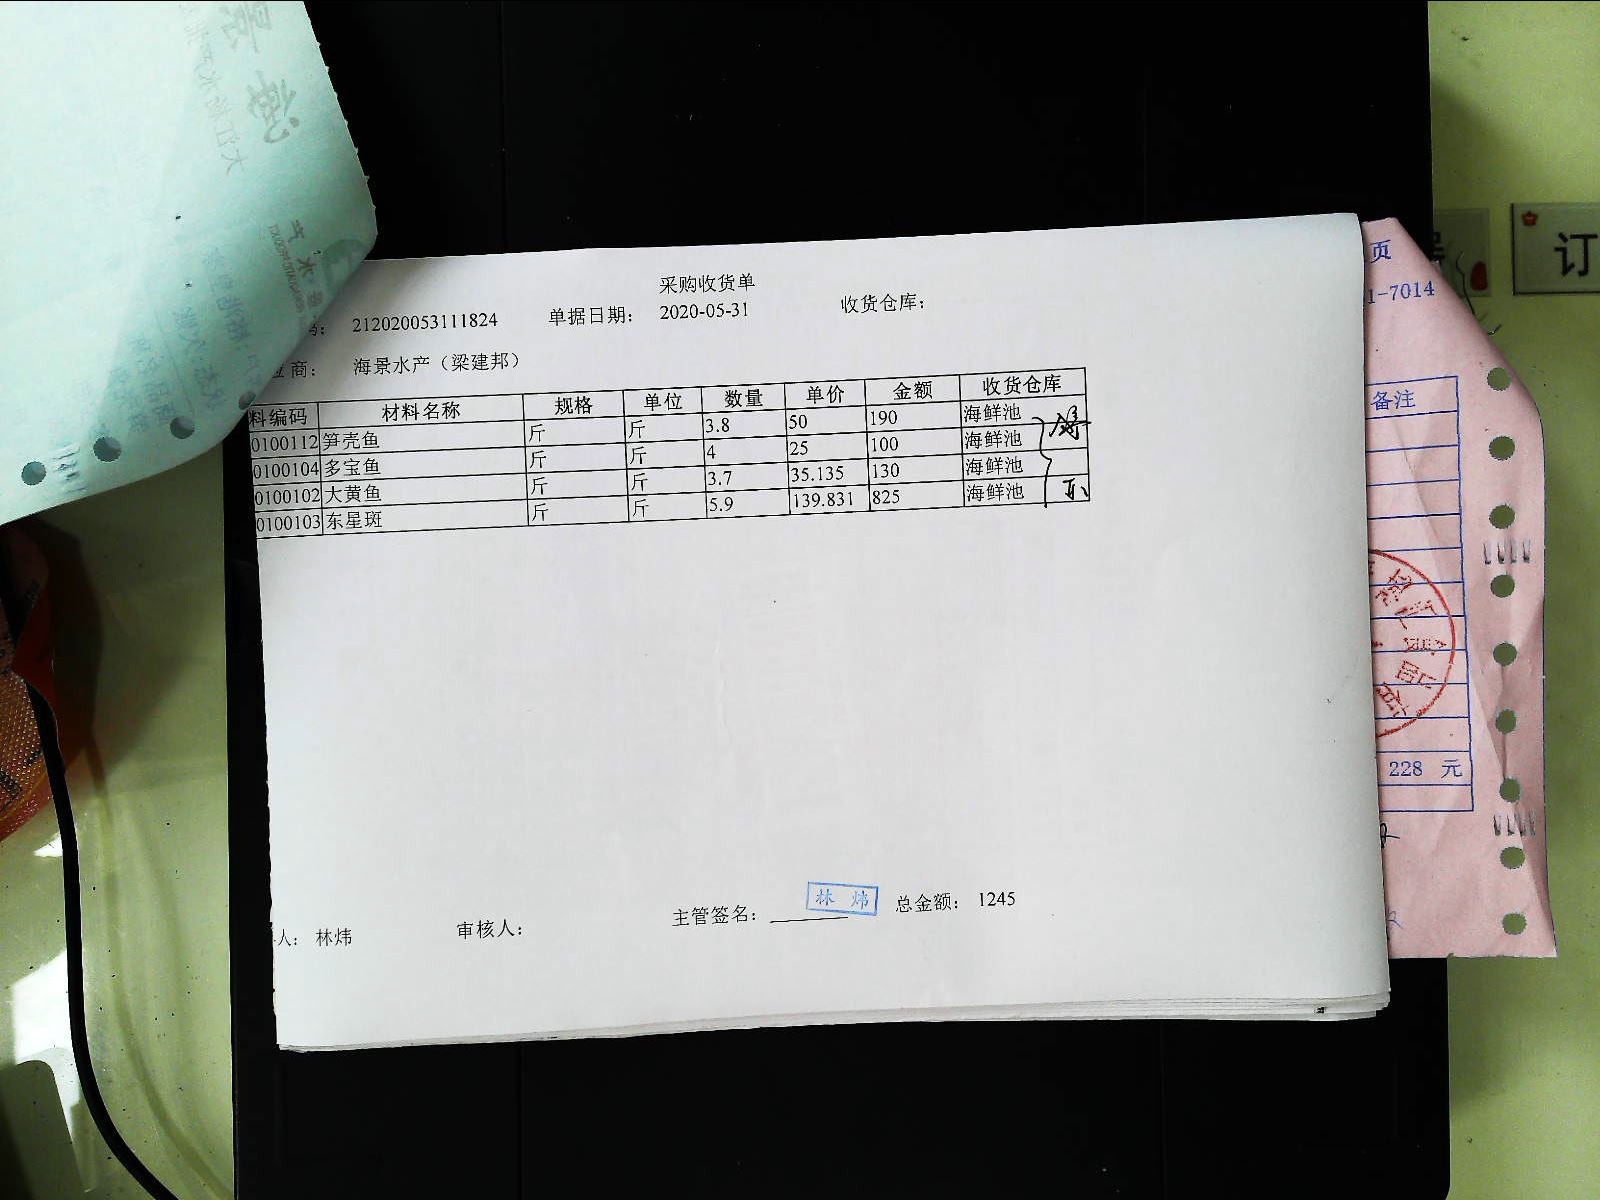 采购收货单
码： 212020053111824 单据日期： 2020-05-31 收货仓库：
应商： 海景水产（梁建邦）
料编码 材料名称 规格 单位 数量 单价 金额 收货仓库
0100112 笋壳鱼 斤 斤 3.8 50 190 海鲜池
0100104 多宝鱼 斤 斤 4 25 100 海鲜池
0100102 大黄鱼 斤 斤 3.7 35.135 130 海鲜池
0100103 东星斑 斤 斤 5.9 139.831 825 海鲜池
人： 林炜 审核人： 主管签名： 林炜 总金额： 1245
页
1-7014
备注
228 元
订